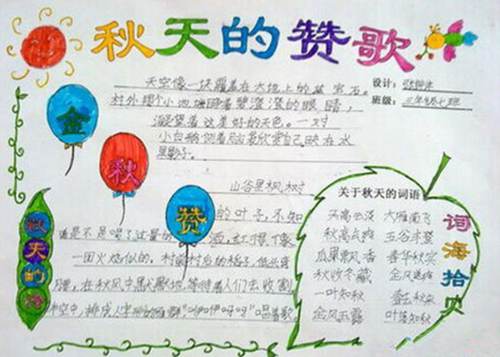 秋天的赞歌
设计:
班级: 三年级七班
天空像一块覆盖在大地上的蓝宝石。
村外那个小池塘睁着碧澄澄的眼睛,
凝望着这美好的天色。一对
小白鹅侧着脑袋欣赏自己映在水
里影子。
山谷里枫树
的叶子,不知
道是不是喝了过量的酒,红
一团火焰似的。村前村后的稻子,低头弯
腰,在秋风中默默地等待着人们去收割
半空中,排成人字形的雁群,"咿咿呀呀"唱着歌
金
秋
赞
秋天的诗
关于秋天的词语
天高云淡 大雁南飞
秋高气爽 五谷丰登
瓜果飘香 春华秋实
秋收冬藏 金风送爽
一叶知秋
金风玉露 叶落知秋
词海拾贝